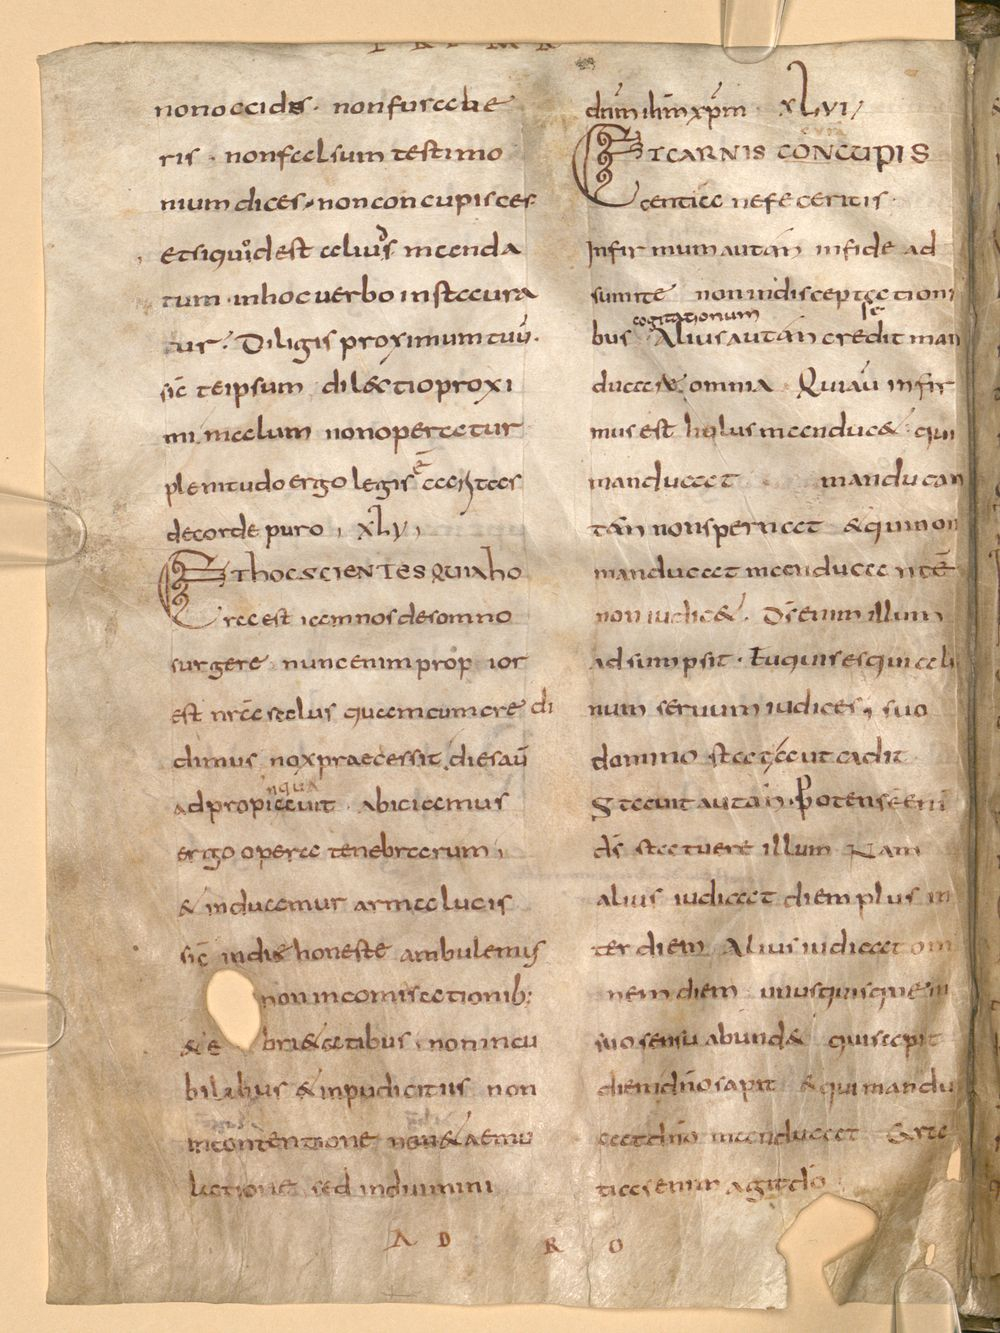 non occides · non furabe
ris · non falsum testimo
nium dices · non concupisces
et si quod est alius manda
tum · in hoc verbo instaura
tur · Diligis proximum tuū ·
sic̄ teipsum dilectio proxi
mi malum non operatur
plenitudo ergo legis ē caritas
de corde puro , XLV ,
ET HOC SCIENTES QUIA HO
ra est iam nos de somno
surgere nunc enim propior
est nr̄a salus quam cum credi
dimus nox praecessit dies aū
adpropiavit abiciamus
nqua
ergo opera tenebrarum ,
& induamur arma lucis
sic̄ in die honeste ambulemus
non in comisationib;
& e brietatibus non in cu
bilibus & inpudicitiis non
in contentione non & aemu
latione sed induimini
dn̄m ih̄m xp̄m XLVI
cura
ET CARNIS CONCUPIS
centiae ne feceritis ·
Infirmum autem in fide ad
sumite non in disceptationi
cogitationum se
bus Alius autem credit man
ducare omnia Qui aū infir
mus est holus manducet qui
manducat manducan
tem non spernat & qui non
manducat manducantē
non iudicet · Ds̄ enim illum
adsumpsit · Tu quis es qui ali
num servum iudices , suo
domino stat aut cadit
Stavit autem · Potens ē eni
ds̄ statuere illum Nam
alius iudicat diem plus in
ter diem Alius iudicat om
nem diem unusquisque in
suo sensu abundet qui sapit
diem dn̄o sapit & qui mandu
cat dn̄o manducat Gra
tias enim agit dō
A D R O